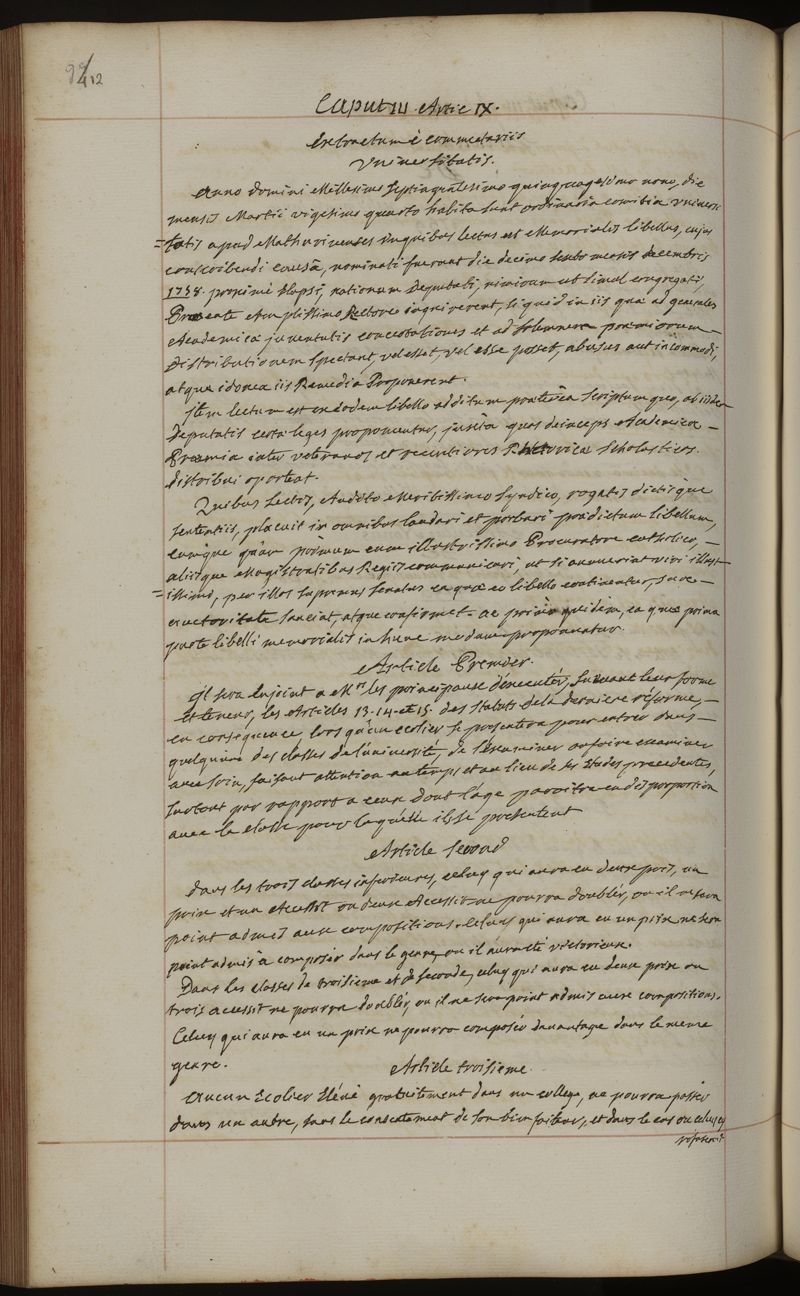 412
Caput III Artic IX.
Extractum è commentariis
Universitatis.
Anno domini Millesimo Septingentesimo quinquagesimo nono, die
mensis Martii vigesimo quarto habita sunt ordinaria comitia Universi
=tatis apud Mathurinenses in quibus lectus est Memorialis libellus, cujus
conscribendi causâ, nominati fuerunt die decimo sexto mensis decembris
1758. proximè Elapsi, rationum Deputati, nimirum ut simul congregati,
Præsente Amplissimo Rectore inquirerent, si quid in iis quæ ad generales
Academicæ juventutis concertationes et ad solemnem præmiorum
Distributionem spectant, vel esset, vel esse posset, abusus aut incommodi,
atque idonea iis Remedia Proponerent.
Item lectum est eodem libello additum prætereà scriptum quo, ab iisdem
Deputatis certæ leges proponentur, juxtà quas deinceps Academica
Præmia inter veteranos et recentiores Rhetoricæ Scholasticos
distribui oporteat.
Quibus Lectis, Audito Meritissimo Syndico, rogatis dictisque
sententiis, placuit in omnibus laudari et probari prædictum libellum,
eumque quàm primum cum illustrissimo Procuratore catholico,
aliisque Magistratibus Regiis communicari, ut si annuerint viri illust
=rissimi, per illos supremus senatus ea quæ eo libello continentur, suâ
auctoritate sanciat, atque confirmet. ac primò quidem, ea quæ prima
parte libelli memorialis in hunc modum proponuntur.
Article Premier.
Il sera Enjoint a Mrs les principaux d'executer, suivant leur forme
et teneur, les Articles 13. 14. et 15. des statuts de la derniere réforme,
en consequence, lors qu'un ecolier se presentera pour entrer dans
quelqu'une des classes de l'université, de l'examiner ou faire examiner
avec soin, faisant attention au temps et au lieu de ses Etudes precedentes,
surtout par rapport a ceux dont l'âge paroitra en disproportion
avec la classe pour laquelle ils se presentent
Article Second
Dans les trois classes inferieures, celuy qui aura eu deux prix, un
prix et un Accessit ou deux Accessit ne pourra doubler, ou il ne sera
point admis aux compositions. Celuy qui aura eu un prix ne sera
point admis à composer dans le genre, ou il aura été victorieux.
Dans les classes de troisieme et de seconde, celuy qui aura eu deux prix ou
trois accessit ne pourra doubler, ou il ne sera point admis aux compositions.
Celuy qui aura eu un prix ne pourra composer davantage dans le meme
genre.
Article troisieme.
Aucun Ecolier Elevé gratuitement dans un college, ne pourra passer
dans un autre, sans le consentement de son bienfaiteur, et dans le cas ou celuy cy